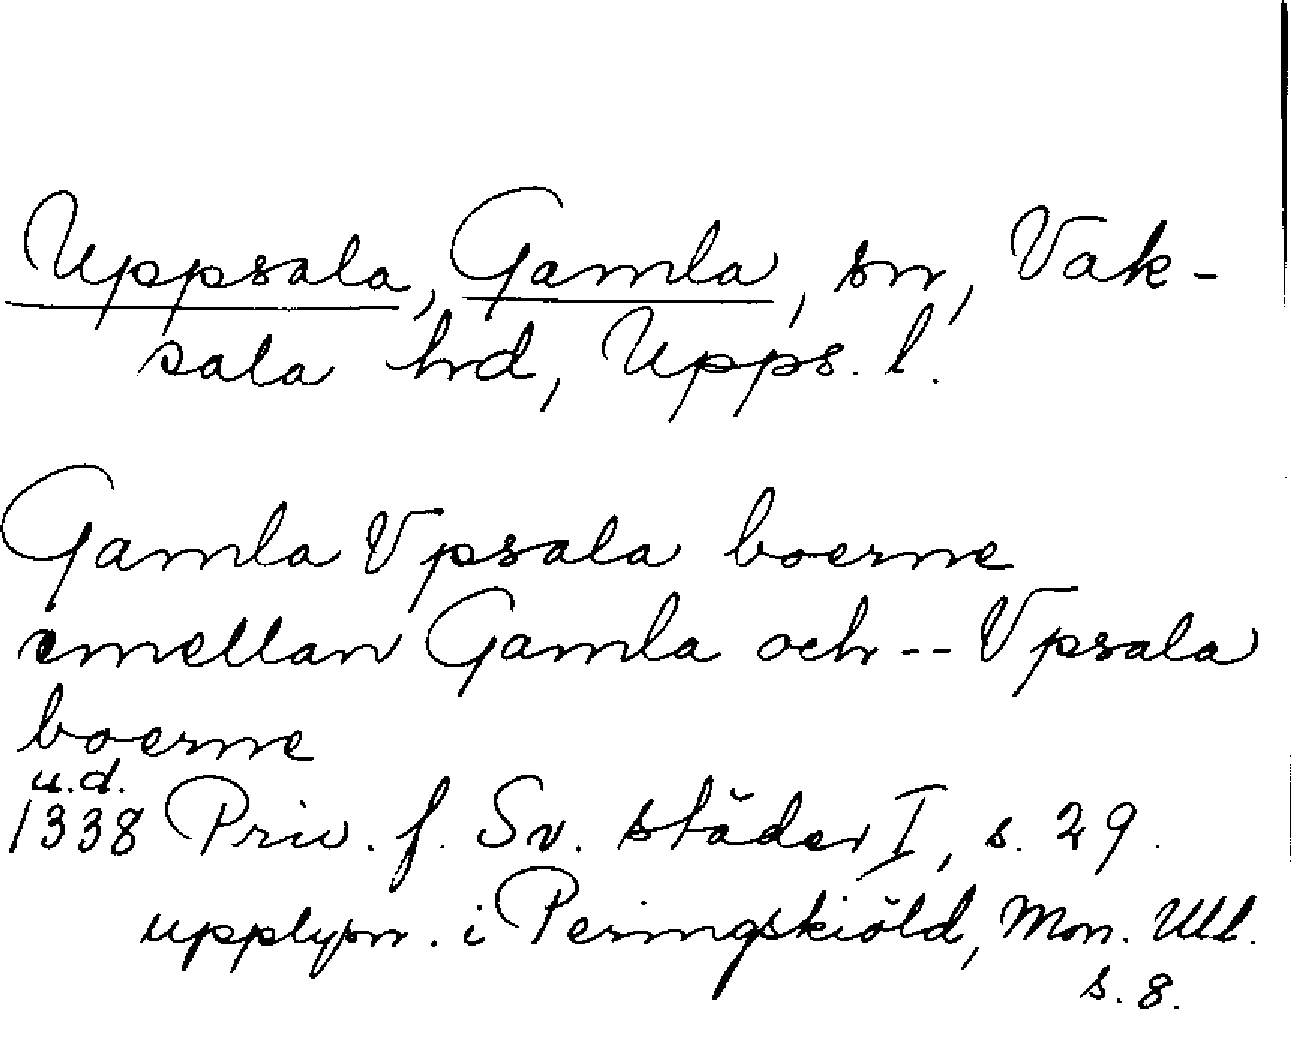 Uppsala, Gamla, sn, Vak-
sala hd, Upps. l.
Gamla Vpsala boerne
emellan Gamla och -- Vpsala
boerne
u.d.
1338 Priv. f. Sv. städer I, s. 29.
upplysn. i Peringskiöld, Mon. Ull.
s. 8.